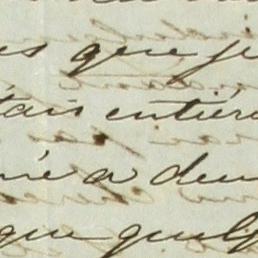 es que je
tais entière
né a deu
que quelq